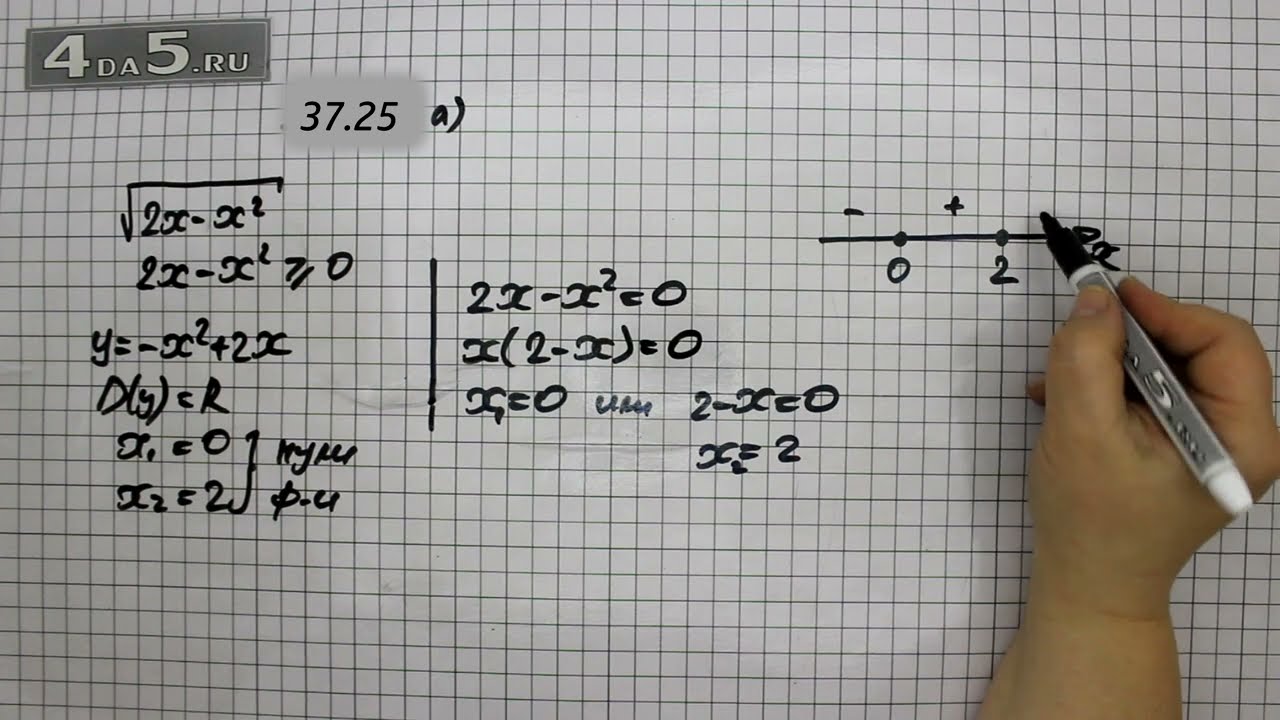 4DA5.RU
37.25 а)
√(2x-x²)
2x-x² ⩾ 0
y=-x²+2x
D(y)=R
x₁=0
x₂=2
нули
ф-и
2x-x²=0
x(2-x)=0
x₁=0 или 2-x=0
x₂=2
- +
0 2 x